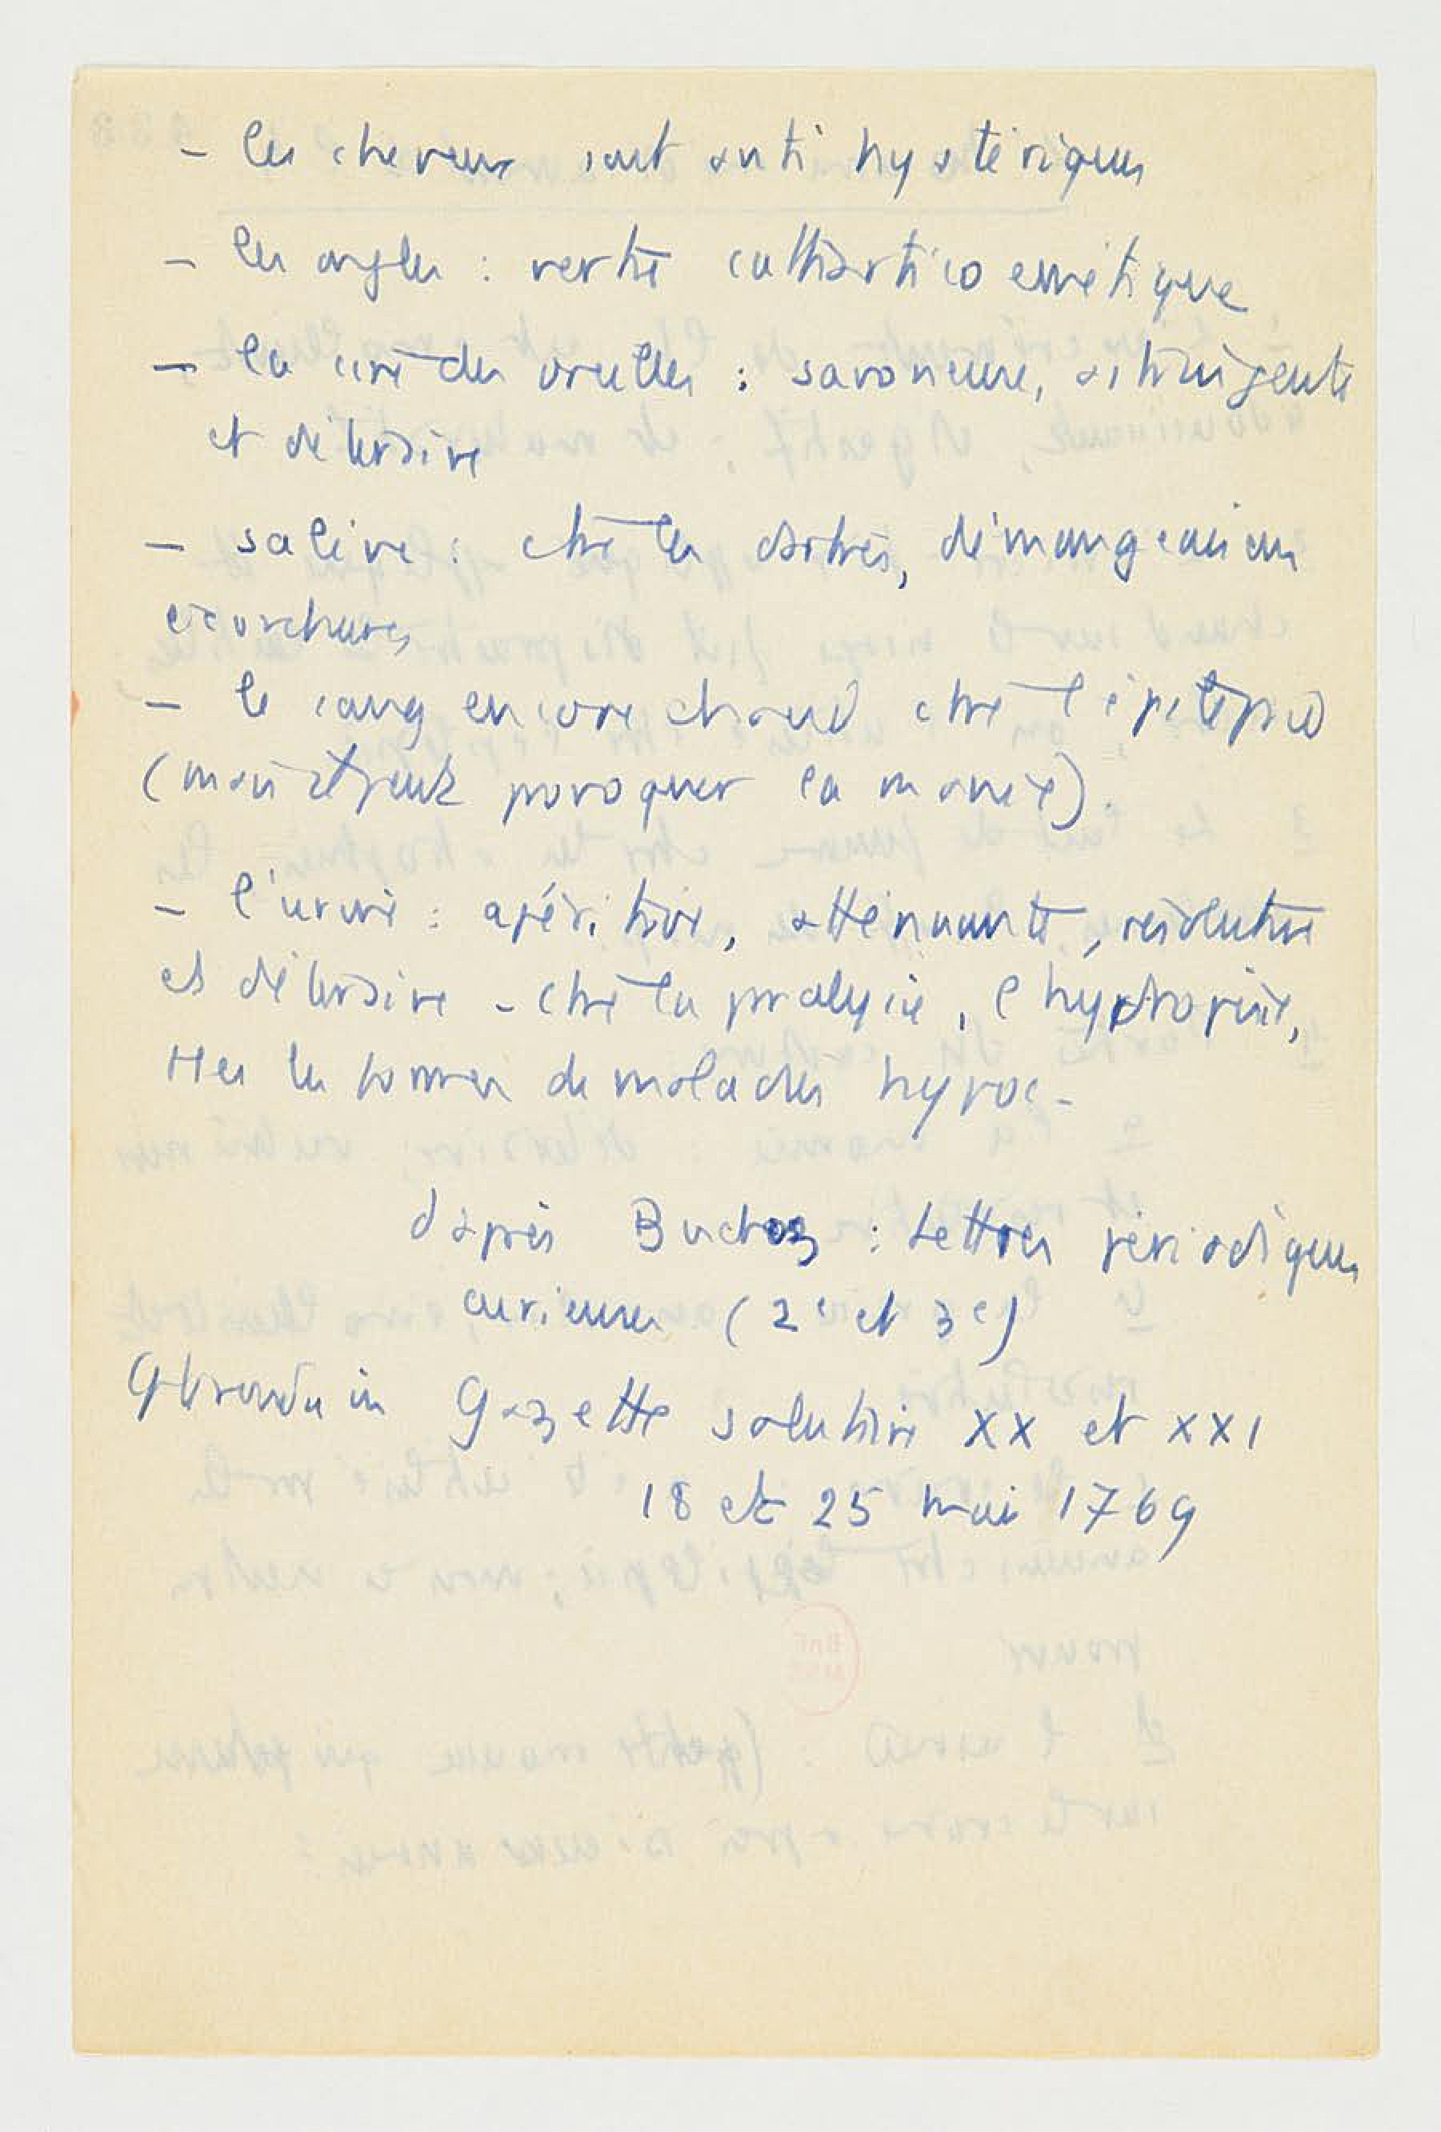 - les cheveux sont anti hystériques
- les ongles : vertu cathartico émétique
- la cire des oreilles : savoneuse, astringente
et détersive
- salive : ctre les dartres, démangeaisons
écorchures
- le sang encore chaud ctre l'épilepsie
(mais il peut provoquer la manie).
- l'urine : apéritive, atténuante, résolutive
et détersive - ctre la paralysie, l'hydropisie,
ttes les formes de maladies hypoc-
d'après Buchoz : Lettres périodiques
curieuses (2e et 3e)
in Gazette salutaire XX et XXI
18 et 25 mai 1769